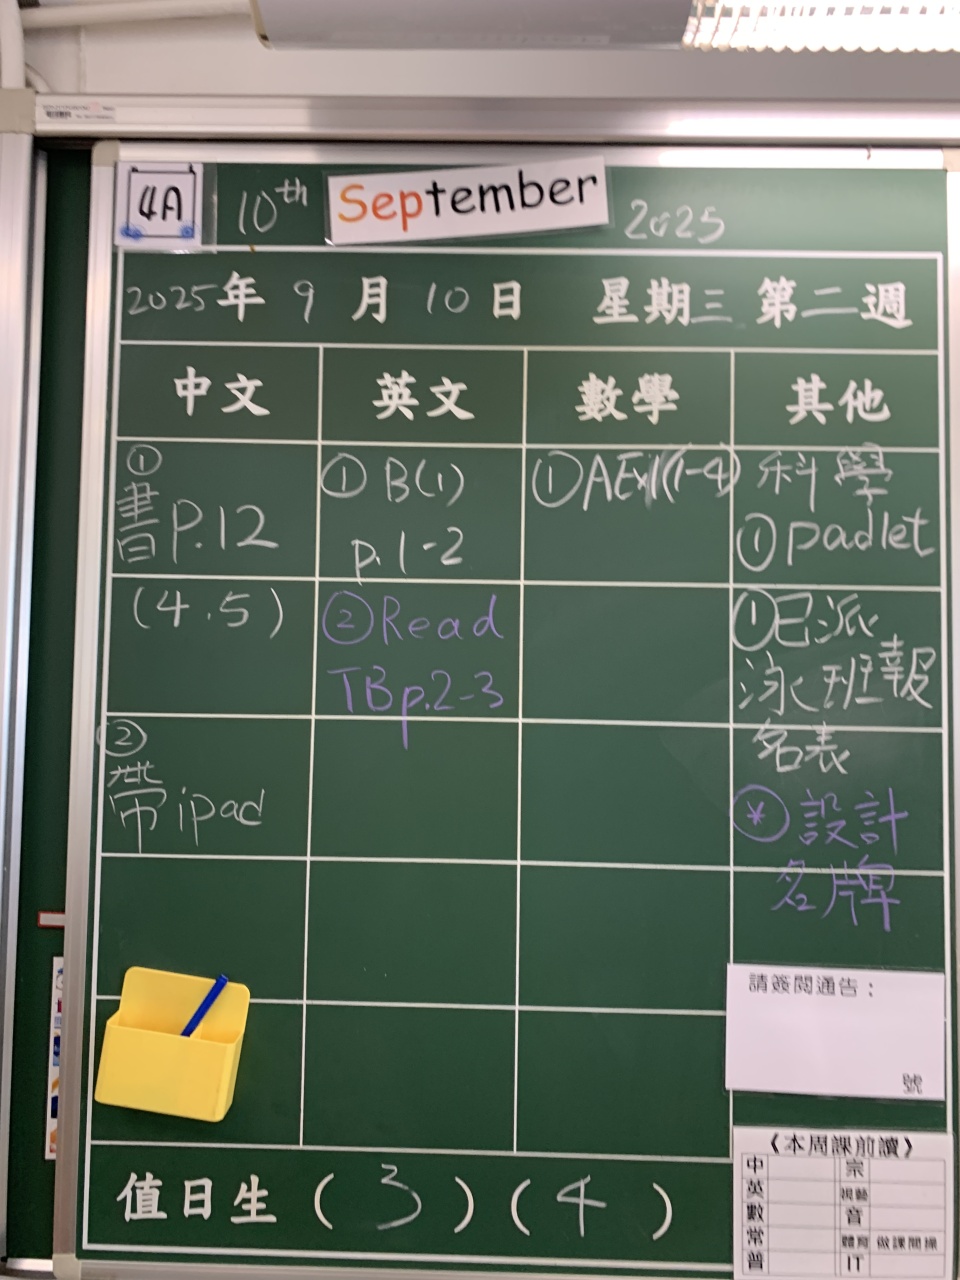 4A 10th September 2025
2025年 9 月 10 日 星期三 第二週
中文 英文 數學 其他
① 書 P.12
(4.5)
② 帶ipad
① B(1)
p.1-2
② Read
TBp.2-3
① AEx1(1-4)
科學
① padlet
① 已派
泳班報
名表
* 設計
名牌
請簽閱通告：
號
《本周課前讀》
中 宗
英 視藝
數 音
常 體育 做課間操
普 IT
值日生 ( 3 ) ( 4 )